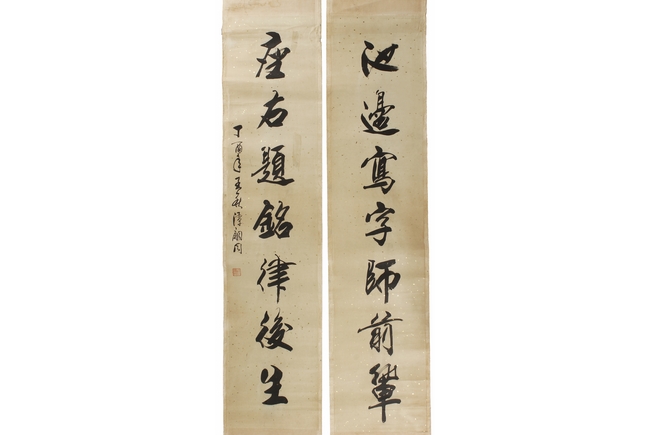 池邊寫字師前輩
座右題銘律後生
丁酉年孟秋譚嗣同